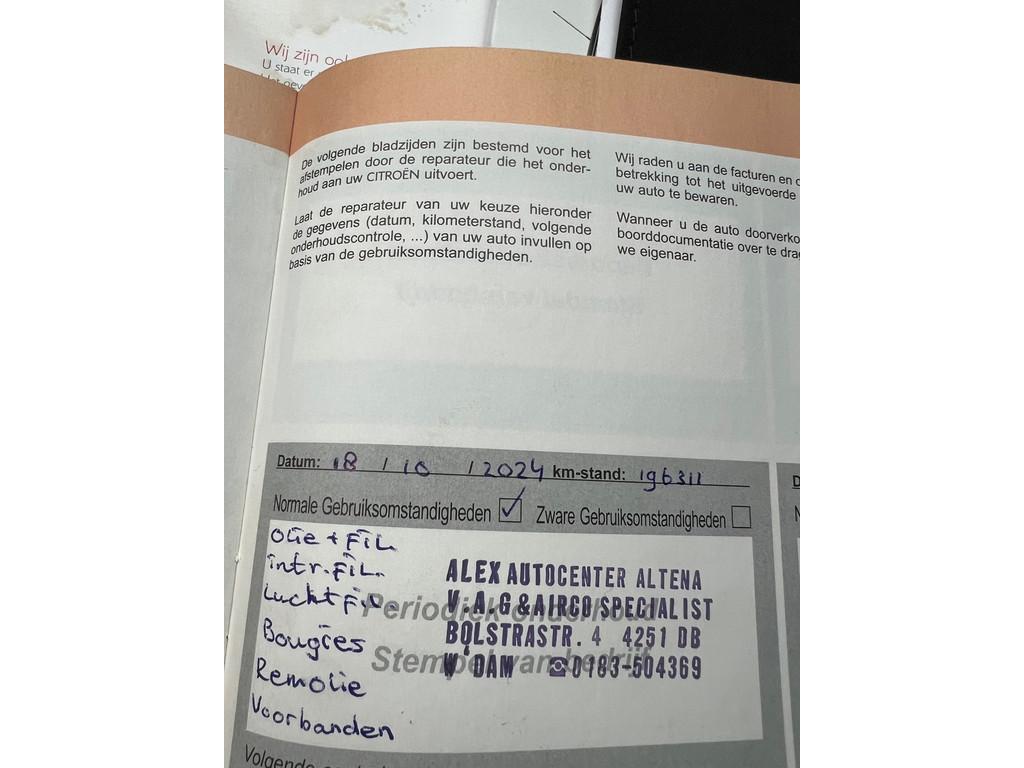 Wij zijn ook
U staat er
De volgende bladzijden zijn bestemd voor het
afstempelen door de reparateur die het onder-
houd aan uw CITROËN uitvoert.
Laat de reparateur van uw keuze hieronder
de gegevens (datum, kilometerstand, volgende
onderhoudscontrole, ...) van uw auto invullen op
basis van de gebruiksomstandigheden.
Wij raden u aan de facturen en
betrekking tot het uitgevoerde
uw auto te bewaren.
Wanneer u de auto doorverko
boorddocumentatie over te dra
we eigenaar.
Datum: 18 / 10 / 2024 km-stand: 196311
Normale Gebruiksomstandigheden Zware Gebruiksomstandigheden
Olie + FiL
intr. FiL.
Luchtfil.
Bougies
Remolie
Voorbanden
Periodiek onderhoud
Stempel van bedrijf
ALEX AUTOCENTER ALTENA
V.A.G & AIRCO SPECIALIST
BOLSTRASTR. 4 4251 DB
W'DAM ☎0183-504369
Volgende